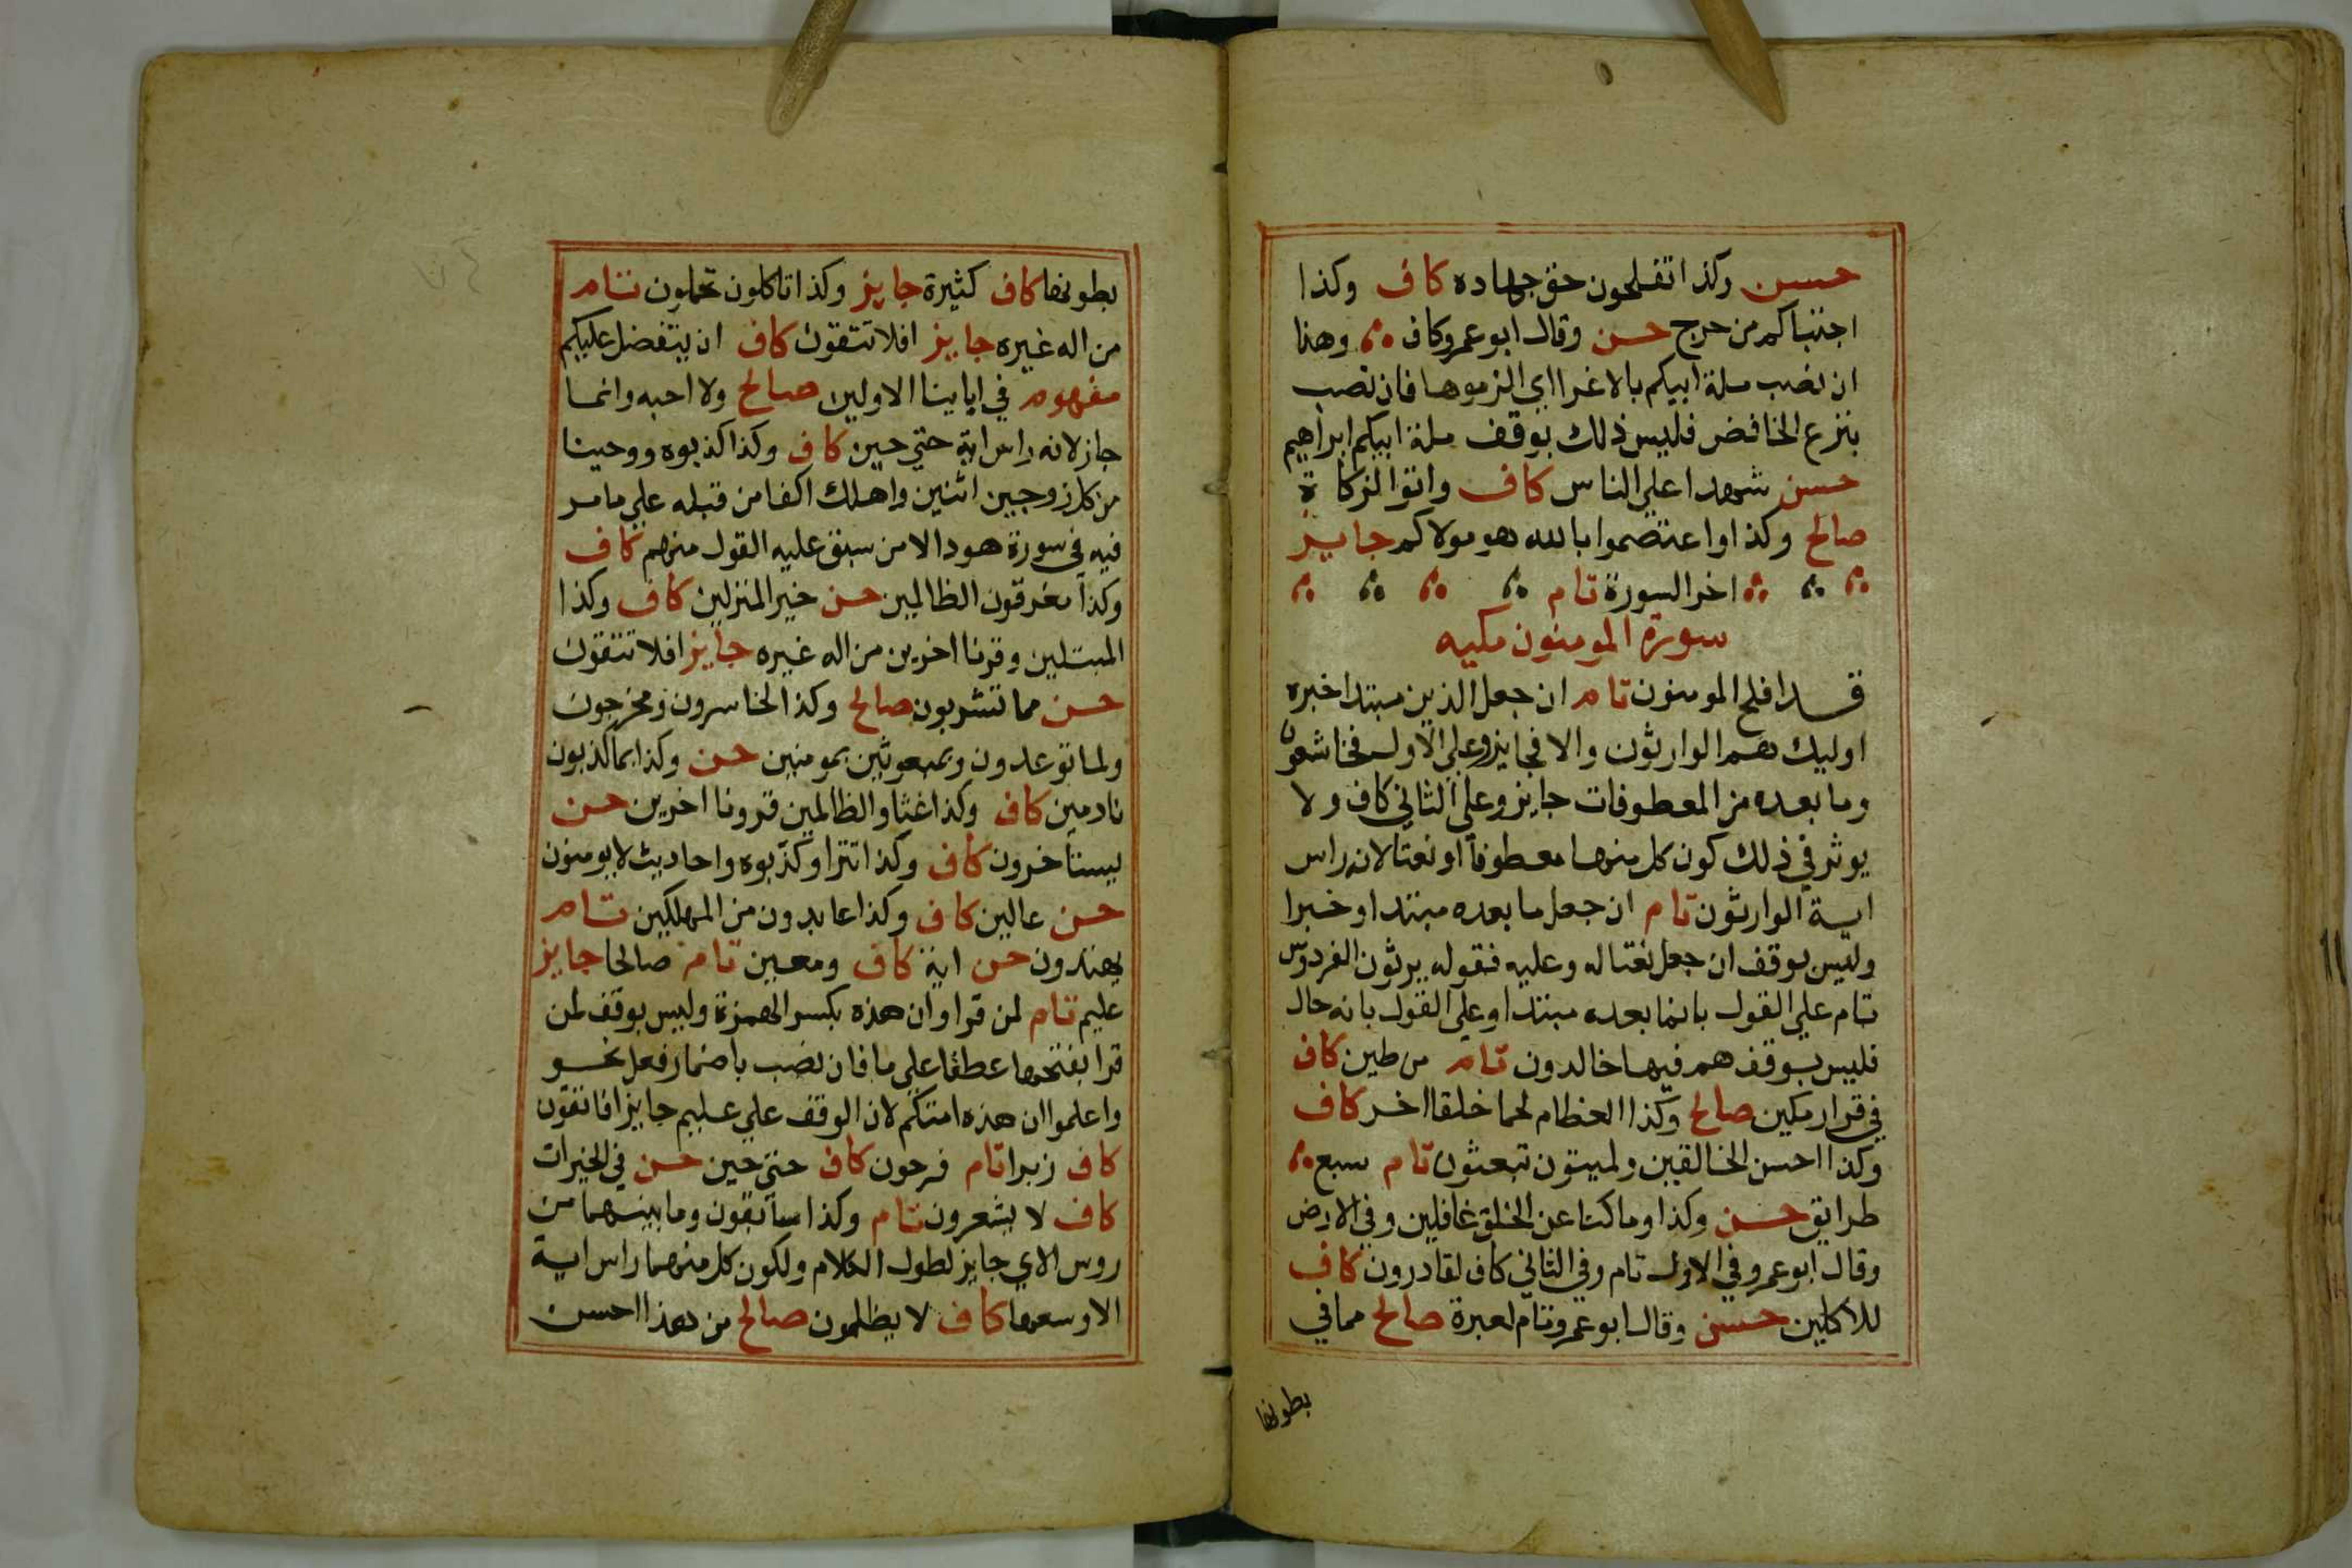 حسن وكذا تفلحون حق جهاده كاف وكذا
اجتباكم من حرج حسن وقال ابو عمرو كاف وهنا
ان نصب ملة ابيكم بالاغرا اي الزموها فان نصب
بنزع الخافض فليس ذلك بوقف ملة ابيكم ابراهيم
حسن شهدا علي الناس كاف واتوا الزكاة
صالح وكذا واعتصموا بالله هو مولاكم جايز
اخر السورة تام
سورة المومنون مكيه
قد افلح المومنون تام ان جعل الذين مبتدا خبره
اوليك هم الوارثون والا فجايز وعلي الاول فخاشعون
وما بعده من المعطوفات جايز وعلي الثاني كاف ولا
يوثر في ذلك كون كل منها معطوفا او نعتا لانه راس
اية الوارثون تام ان جعل ما بعده مبتدا وخبرا
وليس بوقف ان جعل نعتا له وعليه فقوله يرثون الفردوس
تام علي القول بانما بعده مبتدا وعلي القول بانه حال
فليس بوقف هم فيها خالدون تام من طين كاف
في قرار مكين صالح وكذا العظام لحما خلقا اخر كاف
وكذا احسن الخالقين ولميتون تبعثون تام سبع
طرايق حسن وكذا وما كنا عن الخلق غافلين وفي الارض
وقال ابو عمرو في الاول تام وفي الثاني كاف لقادرون كاف
للاكلين حسن وقال ابو عمرو تام لعبرة صالح مما في
بطونها
بطونها كاف كثيرة جايز وكذا تاكلون تحملون تام
من اله غيره جايز افلا تتقون كاف ان يتفضل عليكم
مفهوم في اباينا الاولين صالح ولا احبه وانما
جاز لانه راس اية حتي حين كاف وكذا كذبوه ووحينا
من كل زوجين اثنين واهلك اكفا من قبله علي ما مر
فيه في سورة هود الا من سبق عليه القول منهم كاف
وكذا مغرقون الظالمين حسن خير المنزلين كاف وكذا
المبتلين وقرنا اخرين من اله غيره جايز افلا تتقون
حسن مما تشربون صالح وكذا لخاسرون ومخرجون
ولما توعدون وبمبعوثين بمومنين حسن وكذا بما كذبون
نادمين كاف وكذا غثا والظالمين قرونا اخرين حسن
يستاخرون كاف وكذا تترا وكذبوه واحاديث لا يومنون
حسن عالين كاف وكذا عابدون من المهلكين تام
يهتدون حسن اية كاف ومعين تام صالحا جايز
عليم تام لمن قرا وان هذه بكسر الهمزة وليس بوقف لمن
قرا بفتحها عطفا علي ما فان نصب باضمار فعل نحو
واعلموا ان هذه امتكم لان الوقف علي عليم جايز افاتقون
كاف زبرا تام فرحون كاف حتي حين حسن في الخيرات
كاف لا يشعرون تام وكذا سابقون وما بينهما من
روس الاي جايز لطول الكلام ولكون كل منهما راس اية
الا وسعها كاف لا يظلمون صالح من هذا احسن